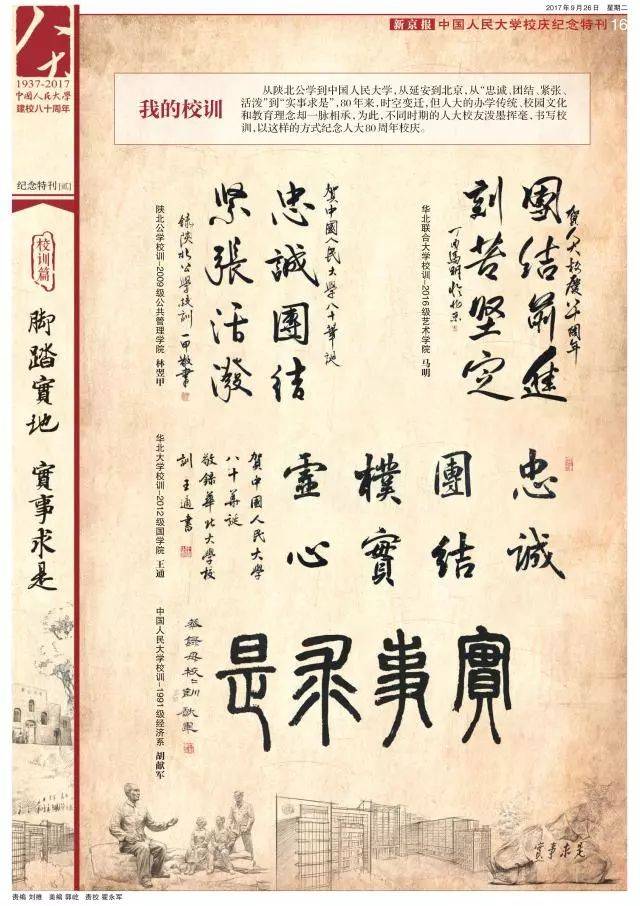 2017年9月26日 星期二
新京报 中国人民大学校庆纪念特刊 16
人大
1937-2017
中国人民大學
建校八十周年
纪念特刊[贰]
校训篇
脚踏實地 實事求是
我的校训
从陕北公学到中国人民大学,从延安到北京,从“忠诚、团结、紧张、
活泼”到“实事求是”,80年来,时空变迁,但人大的办学传统、校园文化
和教育理念却一脉相承,为此,不同时期的人大校友泼墨挥毫,书写校
训,以这样的方式纪念人大80周年校庆。
賀人大校慶八十周年
團结前進
刻苦堅定
丁酉馬明於北京
华北联合大学校训-2016级艺术学院 马明
賀中國人民大學八十華誕
忠誠團结
緊張活潑
錄陝北公學校訓 一甲敬書
陕北公学校训-2009级公共管理学院 林翌甲
忠誠
團結
樸實
虛心
賀中國人民大學
八十華誕
敬錄華北大學校
訓 王通書
华北大学校训-2012级国学院 王通
實事求是
恭錄母校校訓 獻軍
中国人民大学校训-1991级经济系 胡献军
實事求是
责编 刘雅 美编 郭屹 责校 翟永军